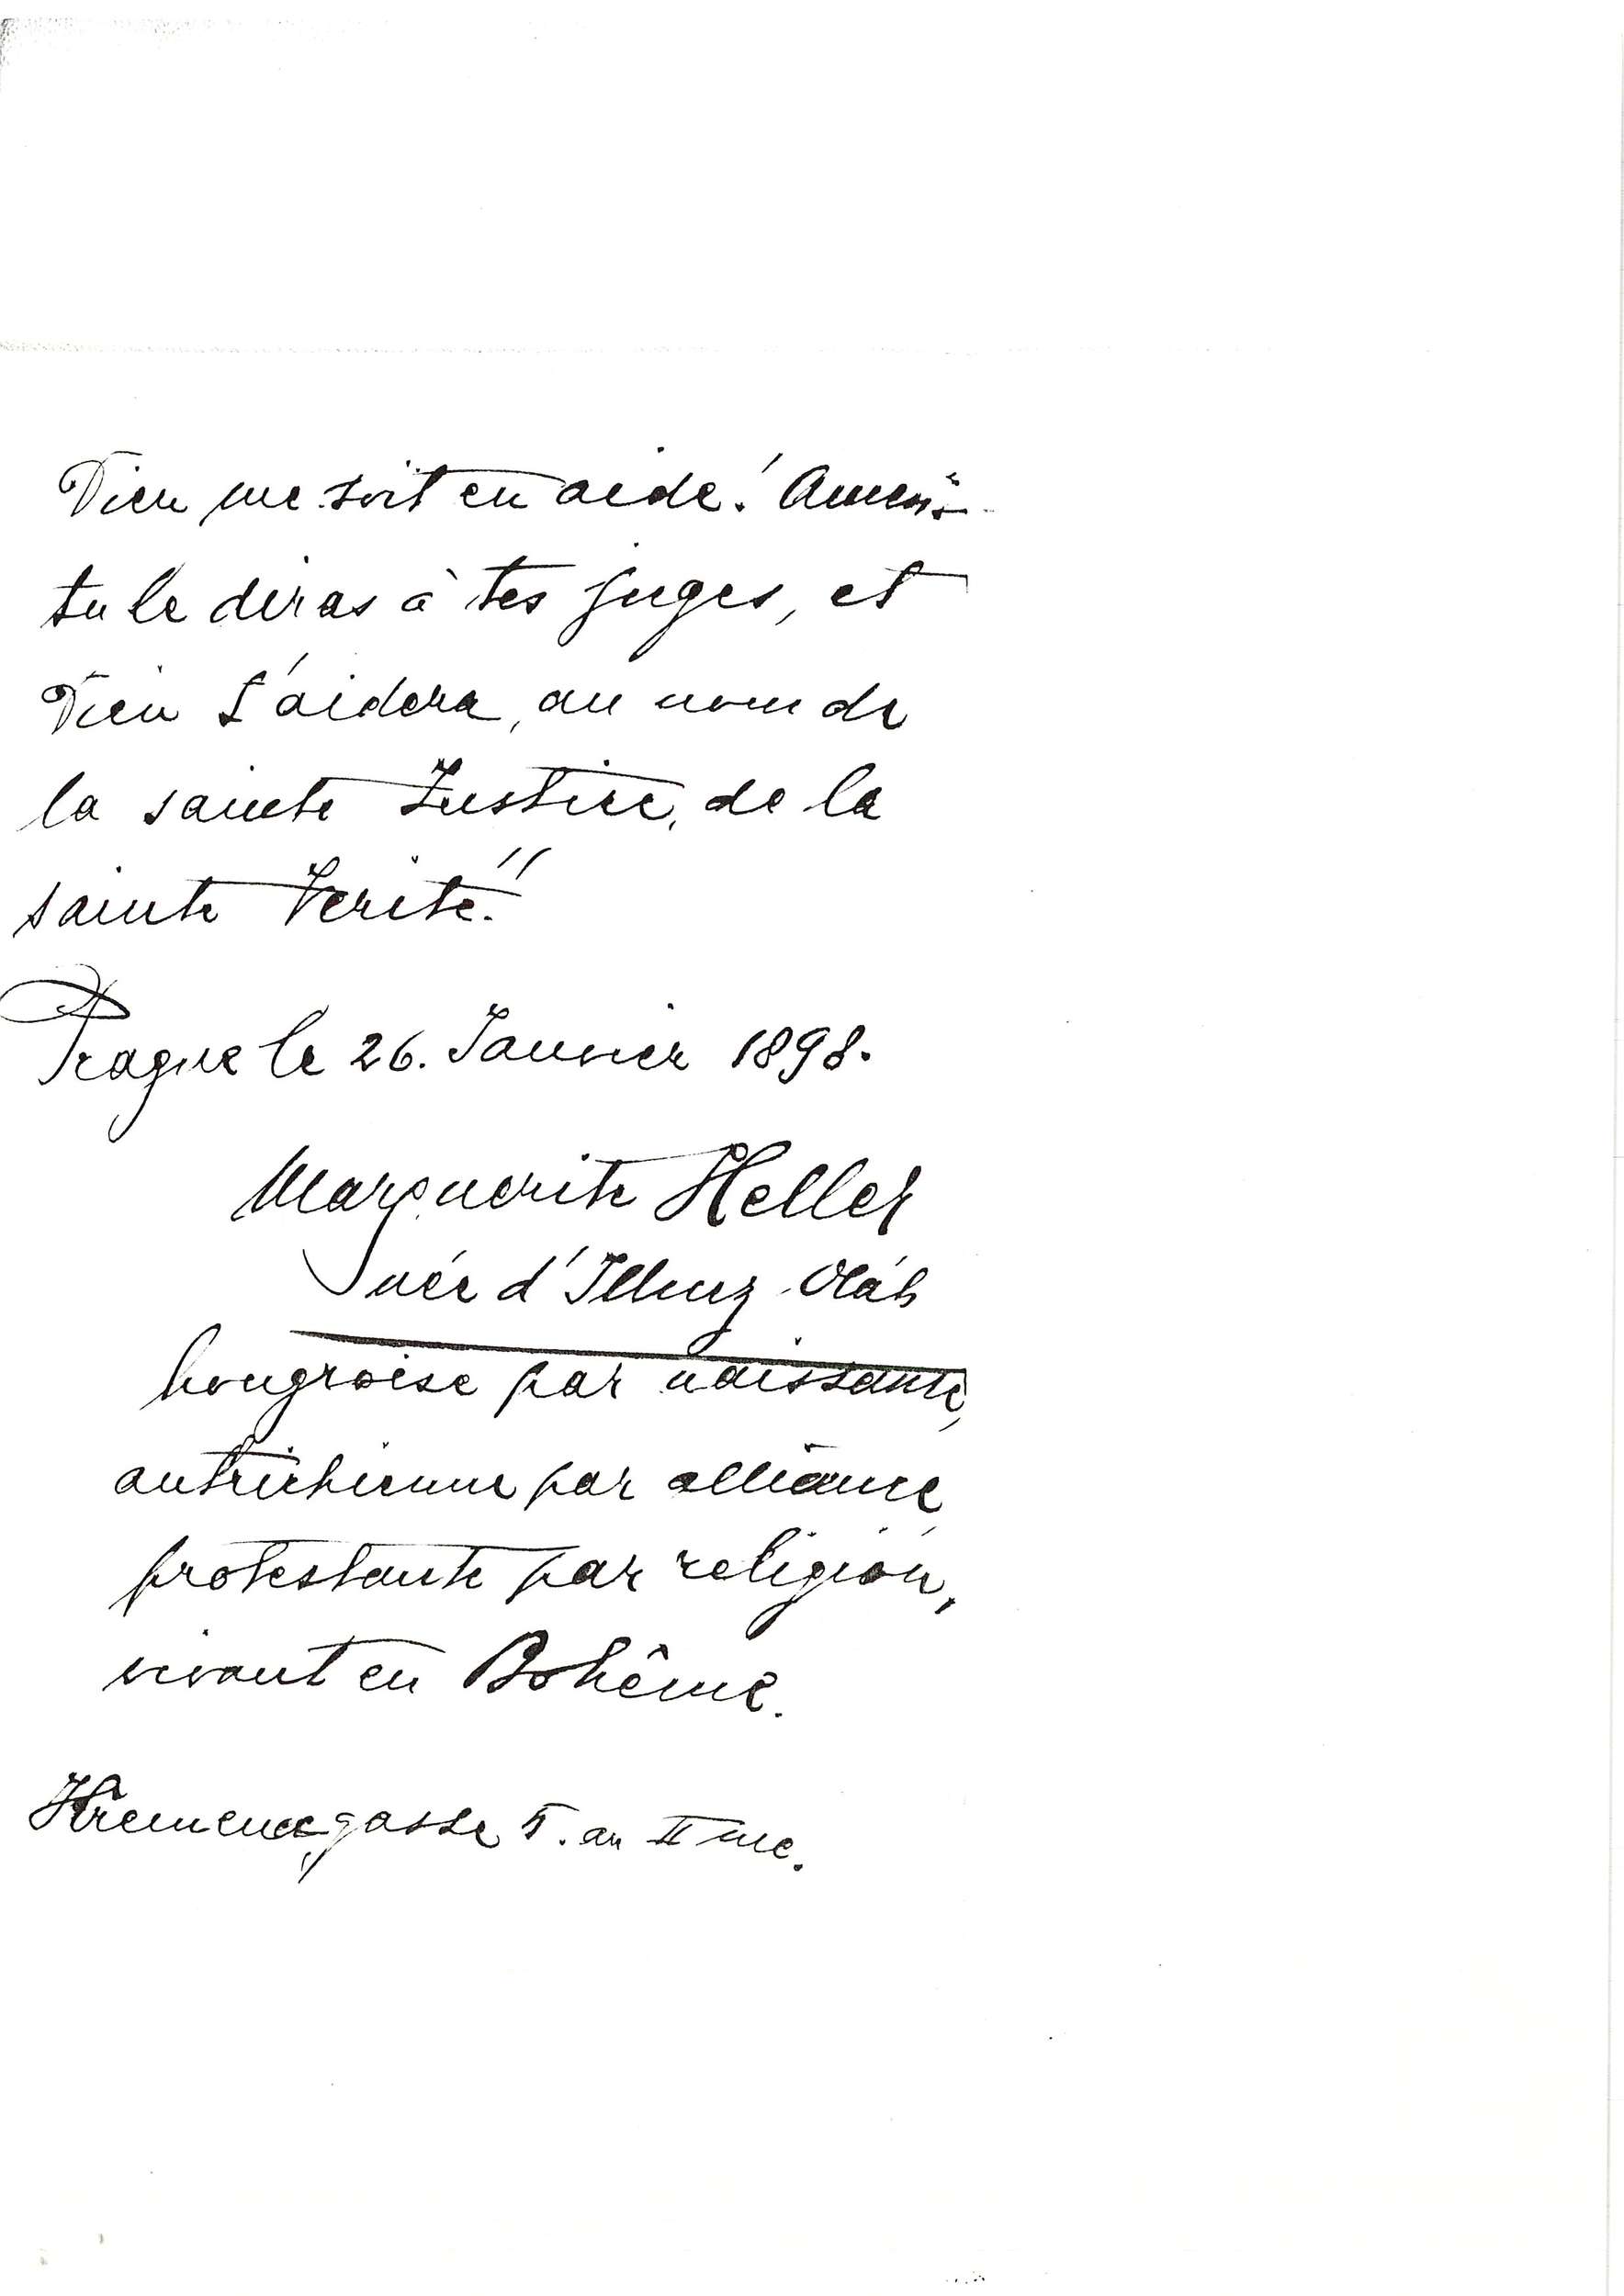 Dieu me soit en aide! Amen:
tu le diras à tes juges, et
Dieu t'aidera, au nom de
la sainte Justice, de la
sainte Verité!!
Prague le 26. Janvier 1898.
Marguerite Heller
née d' Oláh
hongroise par naissance,
autrichienne par alliance,
protestante par religion,
vivant en Bohême.
au II me.